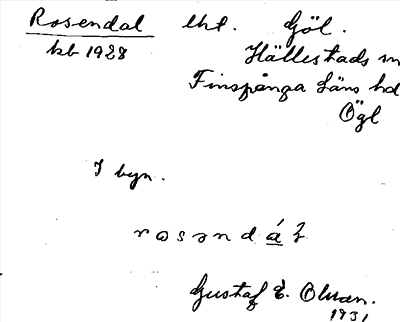 Rosendal lht. Göl.
kb 1928 Hällestads sn
Finspånga läns hd
Ögl
I byn.
rosəndál
Gustaf E. Olsson.
1931